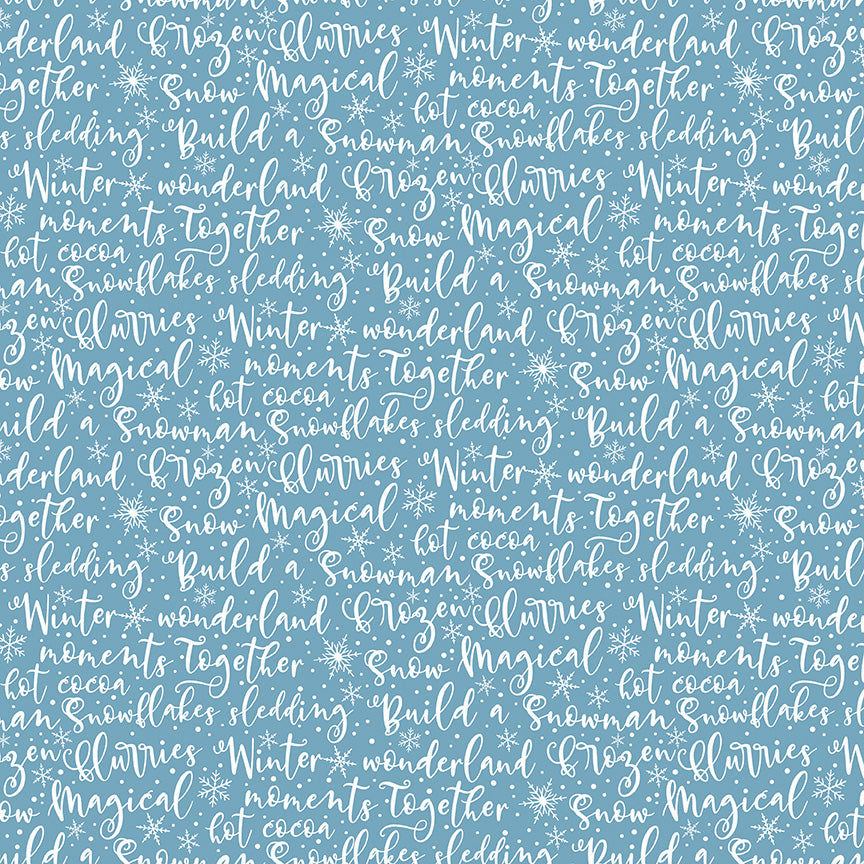 wonderland Frozen flurries Winter wonderland Frozen
Together Snow Magical moments Together Snow
hot cocoa
sledding Build a Snowman Snowflakes sledding Build
Winter wonderland Frozen flurries Winter wonderland
moments Together Snow Magical moments Together
hot cocoa hot cocoa
Snowman Snowflakes sledding Build a Snowman Snowflakes sledding
Frozen flurries Winter wonderland Frozen flurries Winter
Snow Magical moments Together Snow Magical
hot cocoa hot
Build a Snowman Snowflakes sledding Build a Snowman
wonderland Frozen flurries Winter wonderland Frozen
Together Snow Magical moments Together Snow
hot cocoa
sledding Build a Snowman Snowflakes sledding Build
Winter wonderland Frozen flurries Winter wonderland
moments Together Snow Magical moments Together
hot cocoa hot cocoa
Snowman Snowflakes sledding Build a Snowman Snowflakes sledding
Frozen flurries Winter wonderland Frozen flurries Winter
Snow Magical moments Together Snow Magical
hot cocoa hot
Build a Snowman Snowflakes sledding Build a Snowman